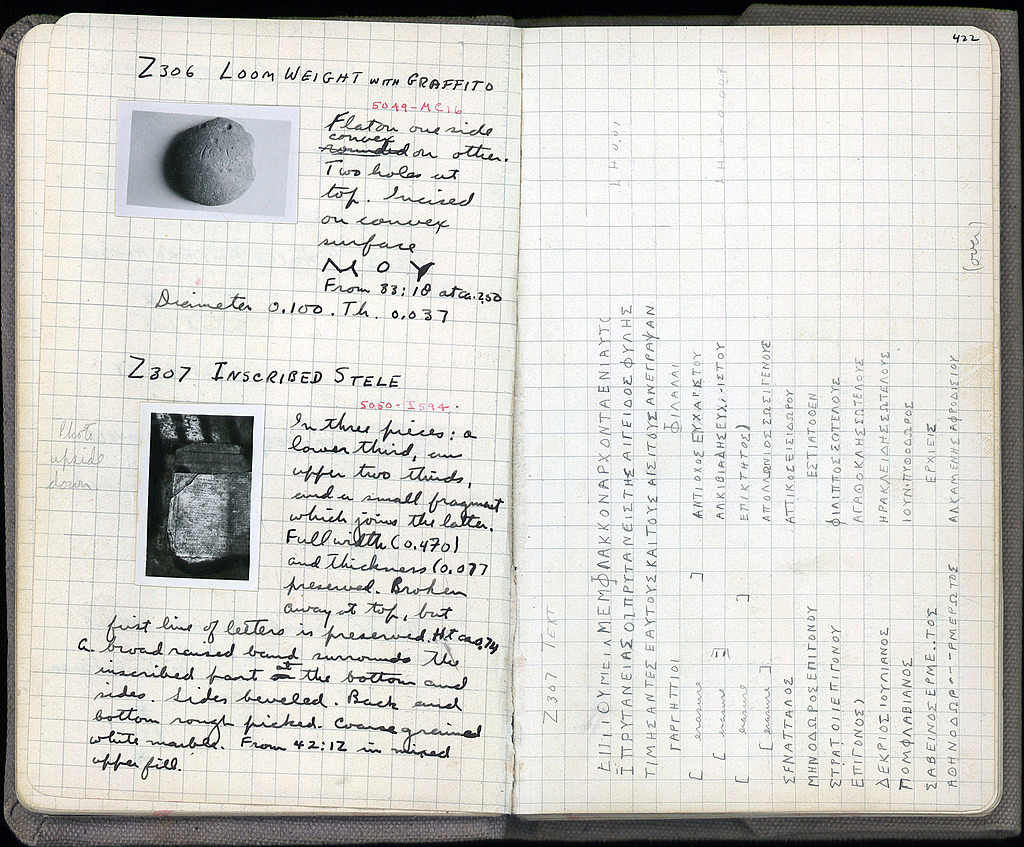 Z306 LOOM WEIGHT WITH GRAFFITO
5049-MC16
Flat on one side
convex
rounded on other.
Two holes at
top. Incised
on convex
surface
Ν Ο Υ
From 83:18 at ca. 2.50
Diameter 0.100. Th. 0.037
Z307 INSCRIBED STELE
5050-I594.
Photo
upside
down
In three pieces: a
lower third, an
upper two thirds,
and a small fragment
which joins the latter.
Full width (0.470)
and thickness (0.077
preserved. Broken
away at top, but
first line of letters is preserved. Ht ca 0.74
A broad raised band surrounds the
inscribed part at the bottom and
sides. Sides beveled. Back and
bottom rough picked. Coarse grained
white marble. From 42:12 in mixed
upper fill.
422
(over)
Z307 TEXT
ΠΡΥΤΑΝΕΙΑΣ ΟΙ ΠΡΥΤΑΝΕΙΣ ΤΗΣ ΑΙΓΕΙΔΟΣ ΦΥΛΗΣ
ΤΙΜΗΣΑΝΤΕΣ ΕΑΥΤΟΥΣ ΚΑΙ ΤΟΥΣ ΑΙΣΙΤΟΥΣ ΑΝΕΓΡΑΨΑΝ
ΓΑΡΓΗΤΤΙΟΙ ΦΙΛΑΙΔΑΙ
[ erasure ] ΑΝΤΙΟΧΟΣ ΕΥΧΑΡΙΣΤΟΥ
[ erasure ΑΛΚΙΒΙΑΔΗΣ ΕΥΧ..ΙΣΤΟΥ
[ erasure ] ΕΠΙΚΤΗΤΟΣ)
[ erasure ] ΑΠΟΛΛΩΝΙΟΣ ΣΩΣΙΓΕΝΟΥΣ
ΑΤΤΙΚΟΣ ΕΙΣΙΔΩΡΟΥ
ΜΗΝΟΔΩΡΟΣ ΕΠΙΓΟΝΟΥ ΕΣΤΙΑΙΟΘΕΝ
ΦΙΛΙΠΠΟΣ ΣΩΤΕΛΟΥΣ
ΕΠΙΓΟΝΟΣ) ΑΓΑΘΟΚΛΗΣ ΣΩΤΕΛΟΥΣ
ΔΕΚΡΙΟΣ ΙΟΥΛΙΑΝΟΣ ΗΡΑΚΛΕΙΔΗΣ ΣΩΤΕΛΟΥΣ
ΠΟΜΦΛΑΒΙΑΝΟΣ ΙΟΥΝ.ΠΥΘΟΔΩΡΟΣ
ΣΑΒΕΙΝΟΣ ΕΡΜΕ..ΤΟΣ ΕΡΧΙΕΙΣ
ΑΛΚΑΜΕΝΗΣ ΑΦΡΟΔΙΣΙΟΥ